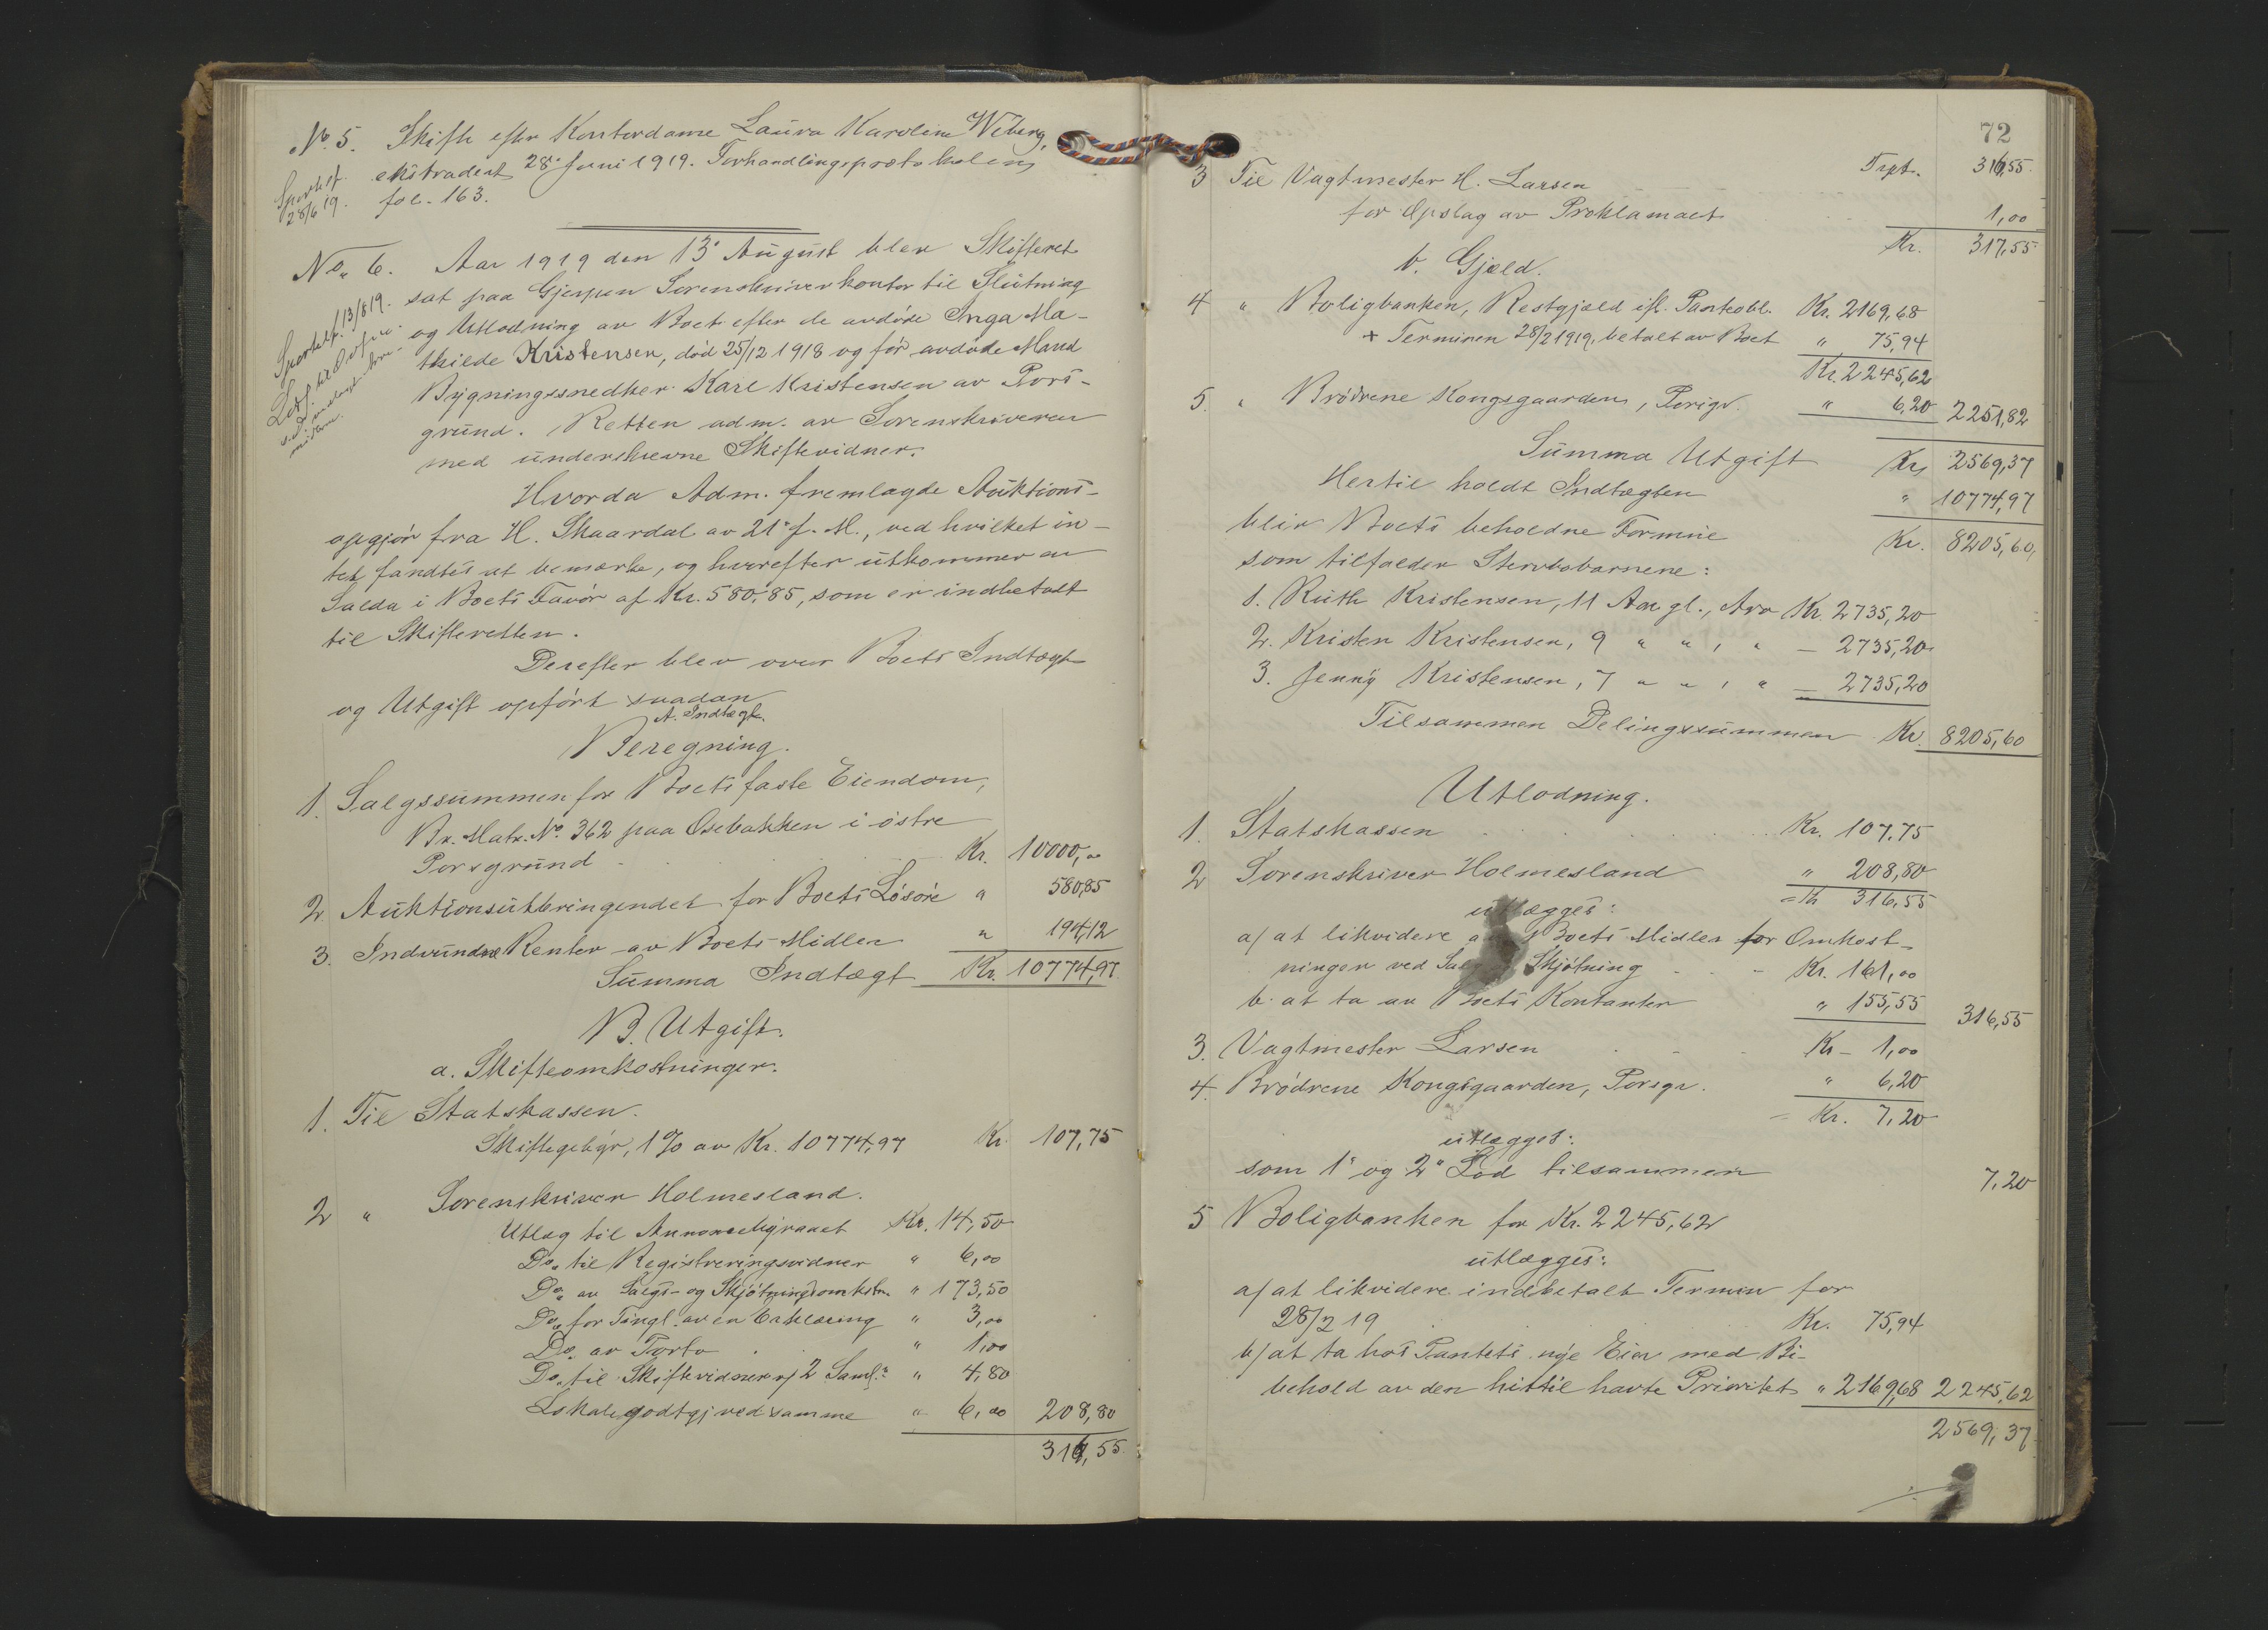 No. 5. Skifte efter Kontordame Laura Karoline Wiberg,
ekstradert 28. Juni 1919. Forhandlingsprotokolens
fol. 163.
Sportelf.
28/6 19.
No. 6. Aar 1919 den 13. August blev Skifteret
sat paa Gjerpen Sorenskriverkontor til Slutning
og Utlodning av Boet efter de avdøde Inga Ma-
thilde Kristensen, død 25/12 1918 og før avdøde Mand
Bygningssnedker Karl Kristensen av Pors-
grund. Retten adm. av Sorenskriveren
med underskrevne Skiftevidner.
Sportelf. 13/8 19.
Hvorda Adm. fremlagde Auktions-
opgjør fra H. Skaardal av 21. f. M., ved hvilket in-
tet fandtes at bemærke, og hvorefter utkommer en
Saldo i Boets Favør af Kr. 580,85, som er indbetalt
til Skifteretten.
Derefter blev over Boets Indtægt
og Utgift opført saadan
A. Indtægt.
Beregning.
1. Salgssummen for Boets faste Eiendom,
Br. Matr. No. 362 paa Osebakken i østre
Porsgrund Kr. 10000,00
2. Auktionsutbringendet for Boets Løsøre " 580,85
3. Indvundne Renter av Boets Midler " 194,12
Summa Indtægt Kr. 10774,97
B. Utgift.
a. Skifteomkostninger.
1. Til Statskassen.
Skiftegebyr, 1% av Kr. 10774,97 Kr. 107,75
2 " Sorenskriver Holmesland.
Utlæg til Kr. 14,50
Do. til Registreringsvidner " 6,00
Do. av Salgs- og Skjøtningsomkostn. " 173,50
Do. for Tingl. av en Erklæring " 3,00
Do. av Porto " 1,00
Do. til Skiftevidner v/ 2 Saml. " 4,80
Lokalegodtgj ved samme " 6,00 208,80
316,55
72
Trpt. 316,55
3 Til Vagtmester H. Larsen
for Opslag av Proklamaet 1,00
Kr. 317,55
b. Gjæld.
4 " Boligbanken, Restgjæld ifl. Panteobl. Kr. 2169,68
+ Terminen 28/2 1919, betalt av Boet " 75,94
Kr. 2245,62
5. " Brødrene Kongsgaarden, Porsgr. " 6,20 2251,82
Summa Utgift Kr. 2569,37
Hertil holdt Indtægten " 10774,97
blir Boets beholdne Formue Kr. 8205,60
som tilfalder Stervbobarnene:
1. Ruth Kristensen, 11 Aar gl., Arv Kr. 2735,20
2. Kristen Kristensen, 9 " " , " — 2735,20
3. Jenny Kristensen, 7 " " , " — 2735,20
Tilsammen Delingssummen Kr. 8205,60
Utlodning.
1. Statskassen Kr. 107,75
2 Sorenskriver Holmesland " 208,80
= Kr 316,55
utlægges:
a/ at likvidere Boets Midler for Omkost-
ninger ved Skjøtning Kr. 161,00
b. at ta av Boets Kontanter " 155,55 316,55
3. Vagtmester Larsen Kr — 1,00
4. Brødrene Kongsgaarden, Porsgr. " 6,20
= Kr. 7,20
utlægges:
som 1. og 2. Lod tilsammen 7,20
5 Boligbanken for Kr. 2245,62
utlægges:
a/ at likvidere indbetalt Termin for
28/2 19 Kr. 75,94
b/ at ta hos Pantets nye Eier med Bi-
behold av den hittil havte Prioritet " 2169,68 2245,62
2569,37